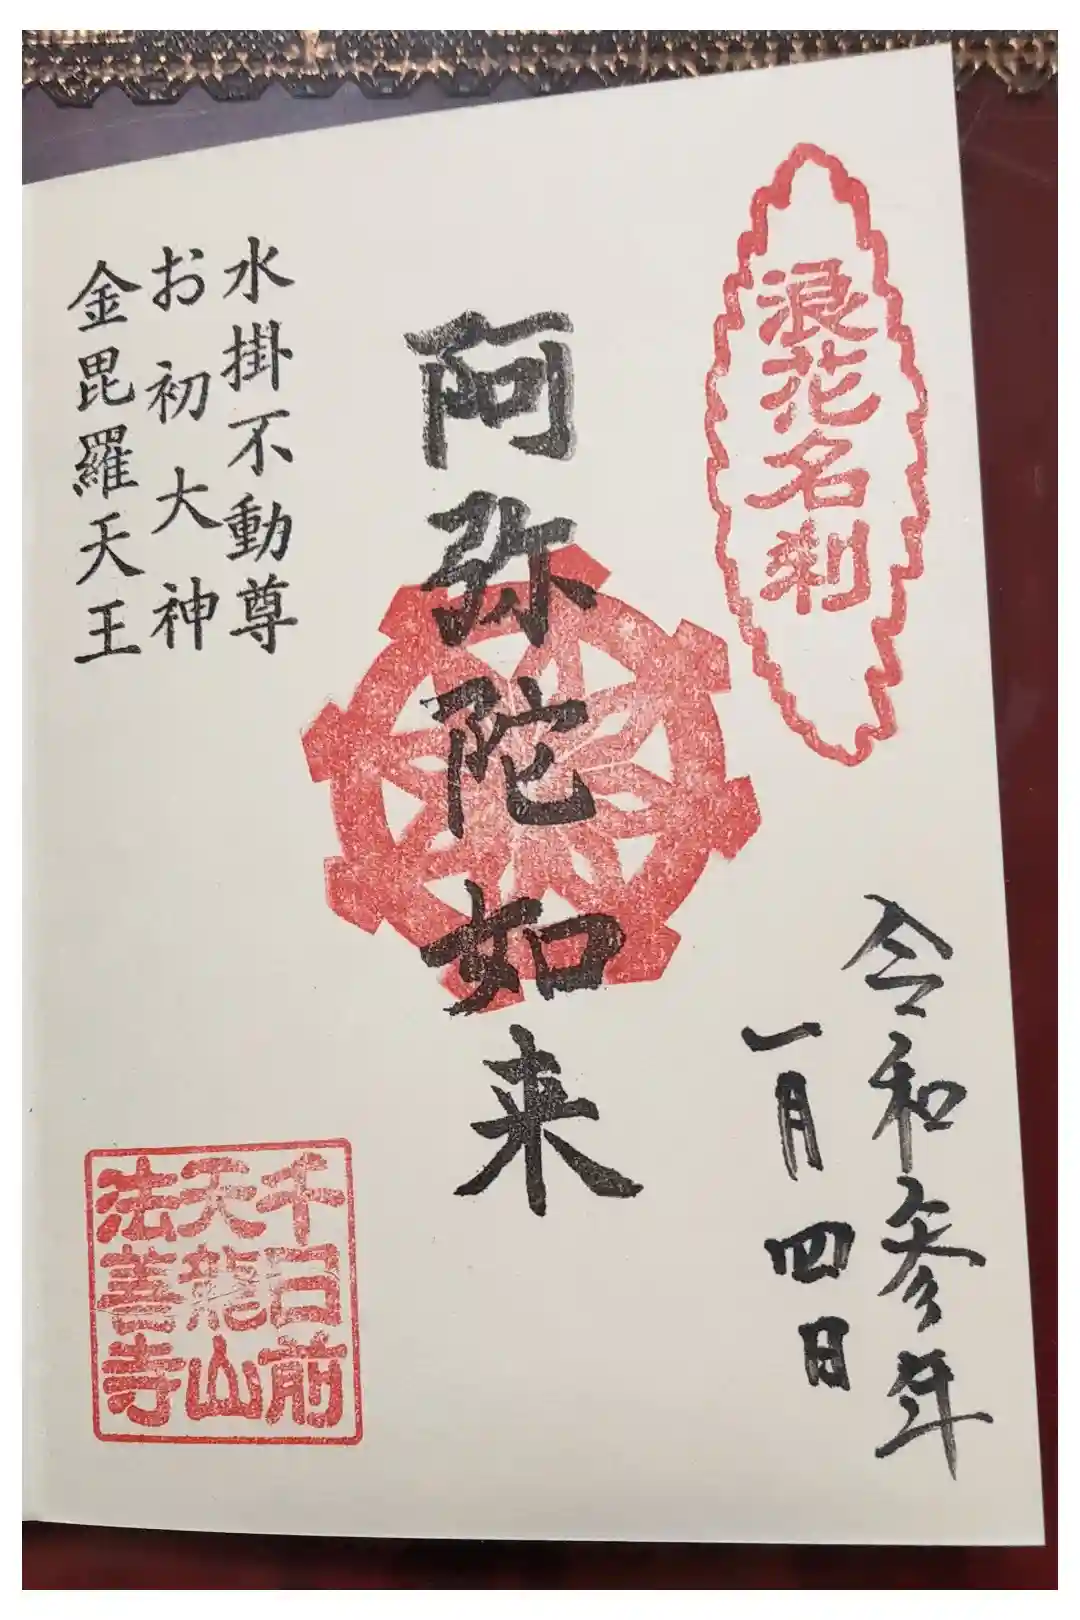 浪花名刹
令和参年
一月四日
阿弥陀如来
水掛不動尊
お初大神
金毘羅天王
千日前
天龍山
法善寺